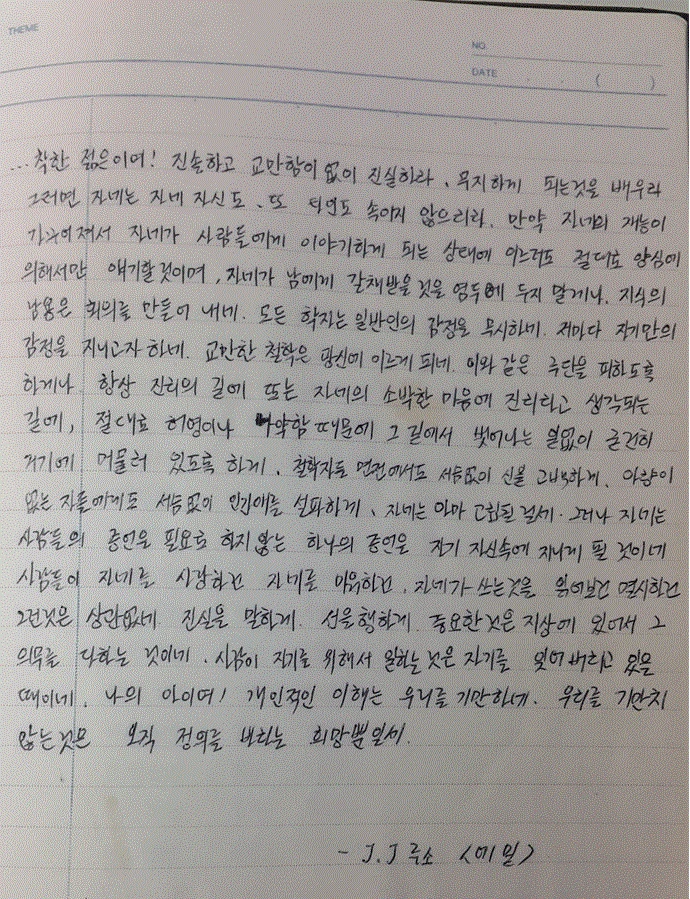 THEME
NO.
DATE . . ( )
...착한 젊은이여! 진솔하고 교만함이 없이 진실하라. 무지하게 되는것을 배우라
그러면 자네는 자네 자신도, 또 타인도 속이지 않으리라. 만약 자네의 재능이
가꾸어져서 자네가 사람들에게 이야기하게 되는 상태에 이르러도 절대로 양심에
의해서만 얘기할것이며, 자네가 남에게 갈채받을것을 염두에 두지 말게나. 지식의
남용은 회의를 만들어 내네. 모든 학자는 일반인의 감정을 무시하네. 저마다 자기만의
감정을 지니고자 하네. 교만한 철학은 광신에 이르게 되네. 이와 같은 극단을 피하도록
하게나. 항상 진리의 길에 또는 자네의 소박한 마음에 진리라고 생각되는
길에, 절대로 허영이나 나약함 때문에 그 길에서 벗어나는 일없이 굳건히
거기에 머물러 있도록 하게. 철학자들 면전에서도 서슴없이 신을 고백하게. 아량이
없는 자들에게도 서슴없이 인간애를 설파하게. 자네는 아마 고립될 걸세. 그러나 자네는
사람들의 증언을 필요로 하지않는 하나의 증언을 자기 자신속에 지니게 될 것이네
사람들이 자네를 사랑하건 자네를 미워하건, 자네가 쓰는것을 읽어보건 멸시하건
그런것은 상관없네. 진실을 말하게. 선을 행하게. 중요한것은 지상에 있어서 그
의무를 다하는 것이네. 사람이 자기를 위해서 일하는것은 자기를 잊어버리고 있을
때이네. 나의 아이여! 개인적인 이해는 우리를 기만하네. 우리를 기만치
않는것은 오직 정의를 바라는 희망뿐일세.
- J.J 루소 <에밀>